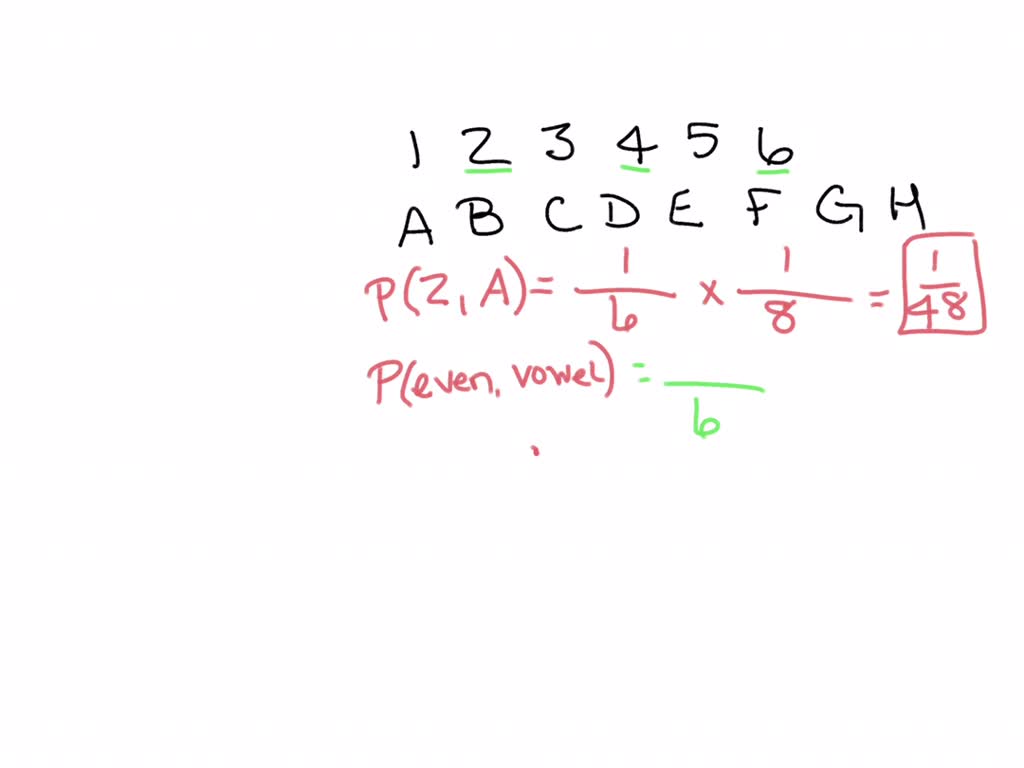 1 2 3 4 5 6
A B C D E F G H
P(2, A) = 1/6 x 1/8 = 1/48
P(even, vowel) = /6